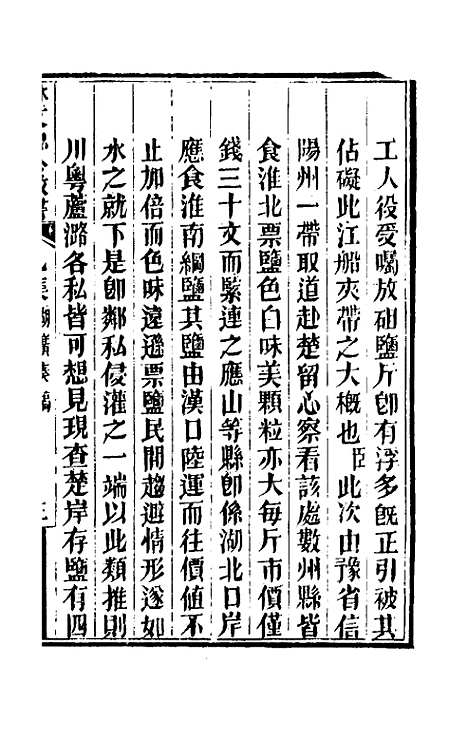 工人役受囑放砠鹽斤卽有浮多旣正引被其
佔礙此江船夾帶之大槪也臣此次由豫省信
陽州一帶取道赴楚留心察看該處數州縣皆
食淮北票鹽色白味美顆粒亦大每斤市價僅
錢三十文而緊連之應山等縣卽係湖北口岸
應食淮南綱鹽其鹽由漢口陸運而往價値不
止加倍而色味遠遜票鹽民間趨避情形遂如
水之就下是卽鄰私侵灌之一端以此類推則
川粵蘆潞各私皆可想見現查楚岸存鹽有四
湖廣奏稿
三